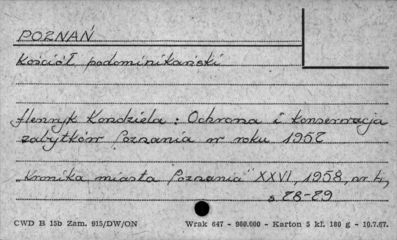 POZNAŃ
Kościół podominikański
Henryk Kondziela : Ochrona i konserwacja
zabytków Poznania w roku 1957
„Kronika miasta Poznania" XXVI, 1958, nr. 4,
s 28-29
CWD B 15b Zam. 915/DW/ON Wrak 647 - 980.000 - Karton 5 kl. 180 g - 10.7.67.